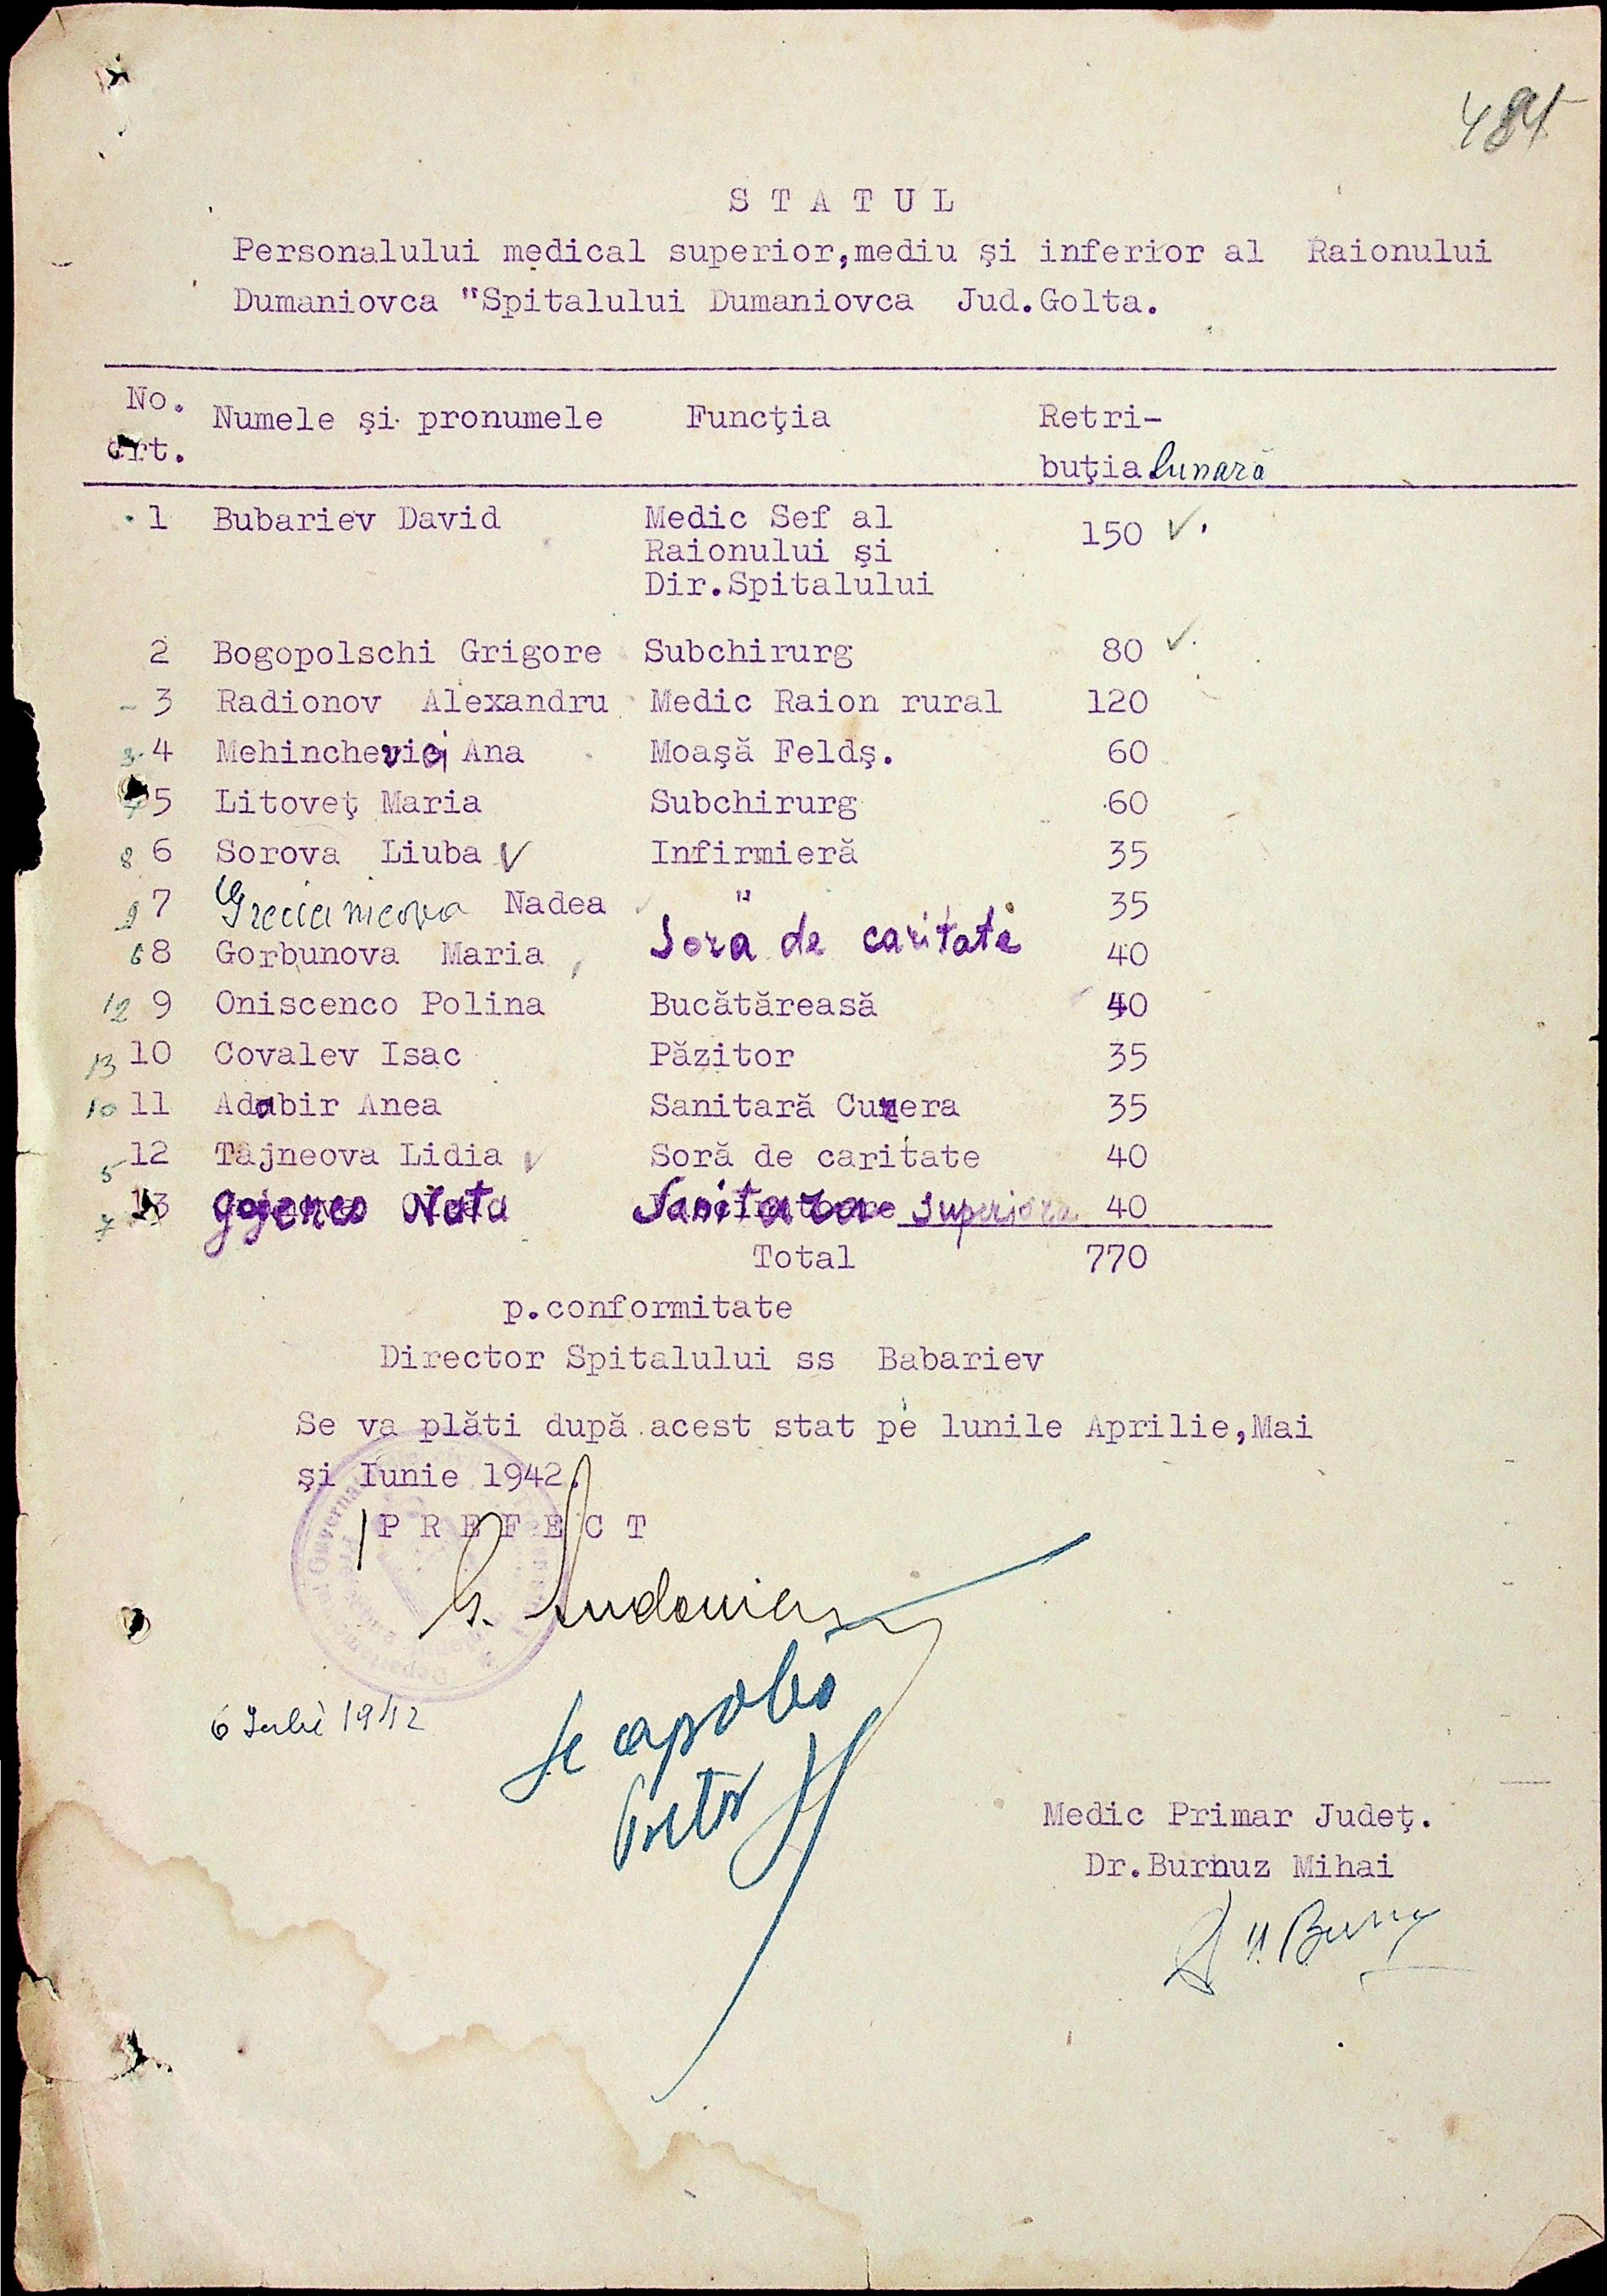 S T A T U L
Personalului medical superior,mediu şi inferior al Raionului
Dumaniovca "Spitalului Dumaniovca Jud.Golta.
No. Numele şi pronumele Funcţia Retri-
crt. buţia lunară
1 Bubariev David Medic Sef al 150
Raionului şi
Dir.Spitalului
2 Bogopolschi Grigore Subchirurg 80
3 Radionov Alexandru Medic Raion rural 120
4 Mehinchevici Ana Moaşă Feldş. 60
5 Litoveţ Maria Subchirurg 60
8 6 Sorova Liuba Infirmieră 35
9 7 Grecianicova Nadea " 35
6 8 Gorbunova Maria Sora de caritate 40
12 9 Oniscenco Polina Bucătăreasă 40
13 10 Covalev Isac Păzitor 35
10 11 Adabir Anea Sanitară Curera 35
5 12 Tajneova Lidia Soră de caritate 40
7 13 Gojenco Nata Sanitara superiora 40
Total 770
p.conformitate
Director Spitalului ss Babariev
Se va plăti după acest stat pe lunile Aprilie,Mai
şi Iunie 1942.
P R E F E C T
6 Iulie 1942
Se aproba
Pretor
Medic Primar Judeţ.
Dr.Burnuz Mihai